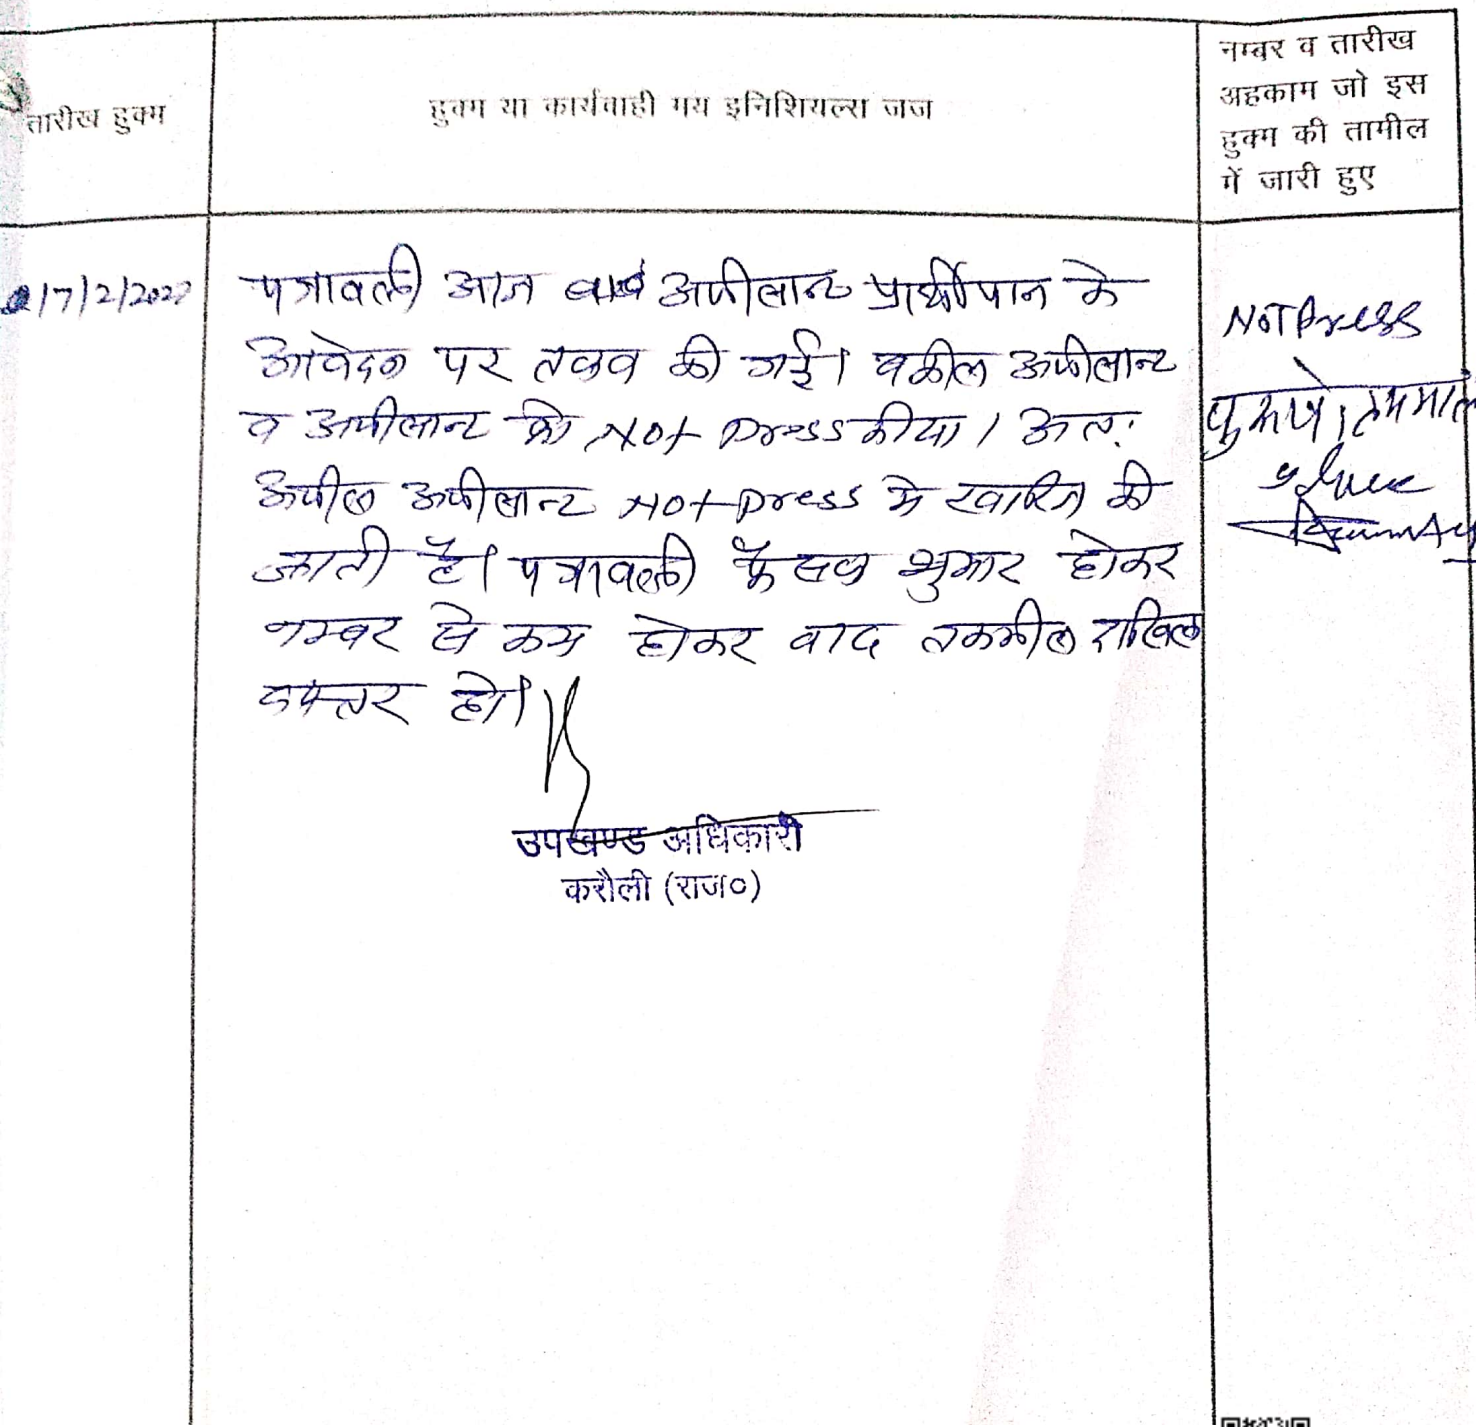 तारीख हुक्म
हुक्म या कार्यवाही मय इनिशियल्स जज
नम्बर व तारीख
अहकाम जो इस
हुक्म की तामील
में जारी हुए
17/2/202
पत्रावली आज अपीलान्ट प्रार्थीयान के
आवेदन पर तलब की गई। वकील अपीलान्ट
व अपीलान्ट ने Not Press कीया। अतः
अपील अपीलान्ट Not Press मे खारिज की
जाती है। पत्रावली फैसल शुमार होकर
नम्बर से कम होकर बाद तकमील दाखिल
दफ्तर हो।
उपखण्ड अधिकारी
करौली (राज०)
Not Press